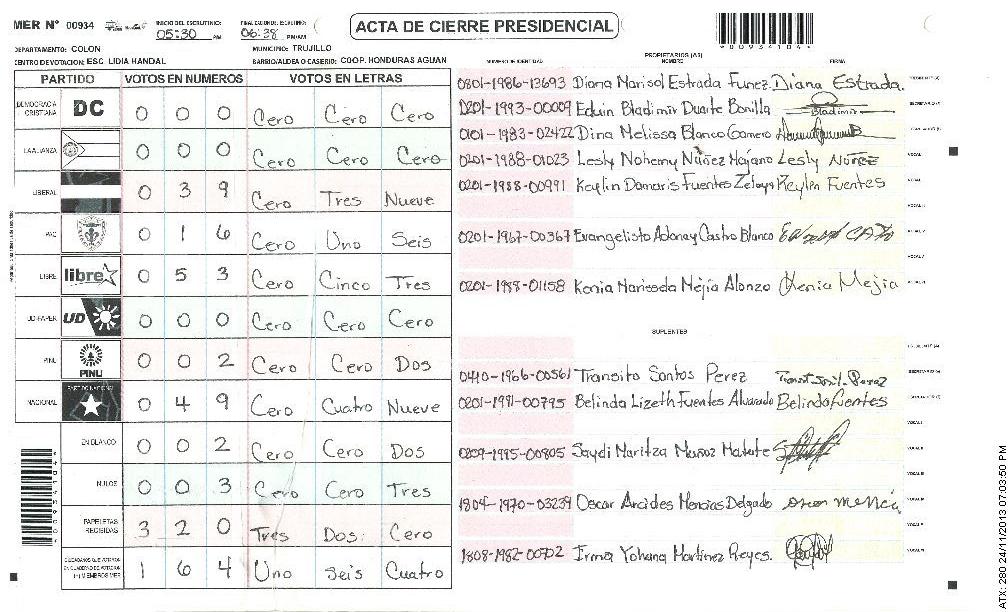 MER N° 00934
INICIO DEL ESCRUTINIO:
05:30 PM
FINALIZACION DE ESCRUTINIO:
06:38 PM/AM
ACTA DE CIERRE PRESIDENCIAL
DEPARTAMENTO: COLON
MUNICIPIO: TRUJILLO
CENTRO DE VOTACION: ESC LIDIA HANDAL
BARRIO/ALDEA O CASERIO: COOP. HONDURAS AGUAN
PARTIDO VOTOS EN NUMEROS VOTOS EN LETRAS
DEMOCRACIA CRISTIANA DC 0 0 0 Cero Cero Cero
LA ALIANZA 0 0 0 Cero Cero Cero
LIBERAL 0 3 9 Cero Tres Nueve
PAC 0 1 6 Cero Uno Seis
LIBRE libre 0 5 3 Cero Cinco Tres
UD-FAPER UD 0 0 0 Cero Cero Cero
PINU PINU 0 0 2 Cero Cero Dos
NACIONAL PARTIDO NACIONAL 0 4 9 Cero Cuatro Nueve
EN BLANCO 0 0 2 Cero Cero Dos
NULOS 0 0 3 Cero Cero Tres
PAPELETAS RECIBIDAS 3 2 0 Tres Dos Cero
1 6 4 Uno Seis Cuatro
NUMERO DE IDENTIDAD
PROPIETARIOS (AS)
NOMBRE
FIRMA
0801-1986-13693 Diana Marisol Estrada Funez Diana Estrada
0201-1993-00009 Eduin Bladimir Duarte Bonilla Bladimir
0101-1983-02422 Dina Melissa Blanco Gamero
0201-1988-01023 Lesly Nohemy Núñez Majano Lesly Núñez
0201-1988-00991 Keylin Damaris Fuentes Zelaya Keylin Fuentes
0201-1967-00367 Evangelisto Adonay Castro Blanco
0201-1988-01158 Kenia Mejia Alonzo Kenia Mejia
SUPLENTES
0410-1966-00561 Transito Santos Perez
0201-1981-00795 Belinda Lizeth Fuentes Alvarado Belinda fuentes
0209-1985-00805 Saydi Maritza Muñoz Matute
1804-1970-03239 Oscar Arcides Mencias Delgado
1808-1982-00702 Irma Yohana Martinez Reyes.
ATX: 280 24/11/2013 07:03:50 PM